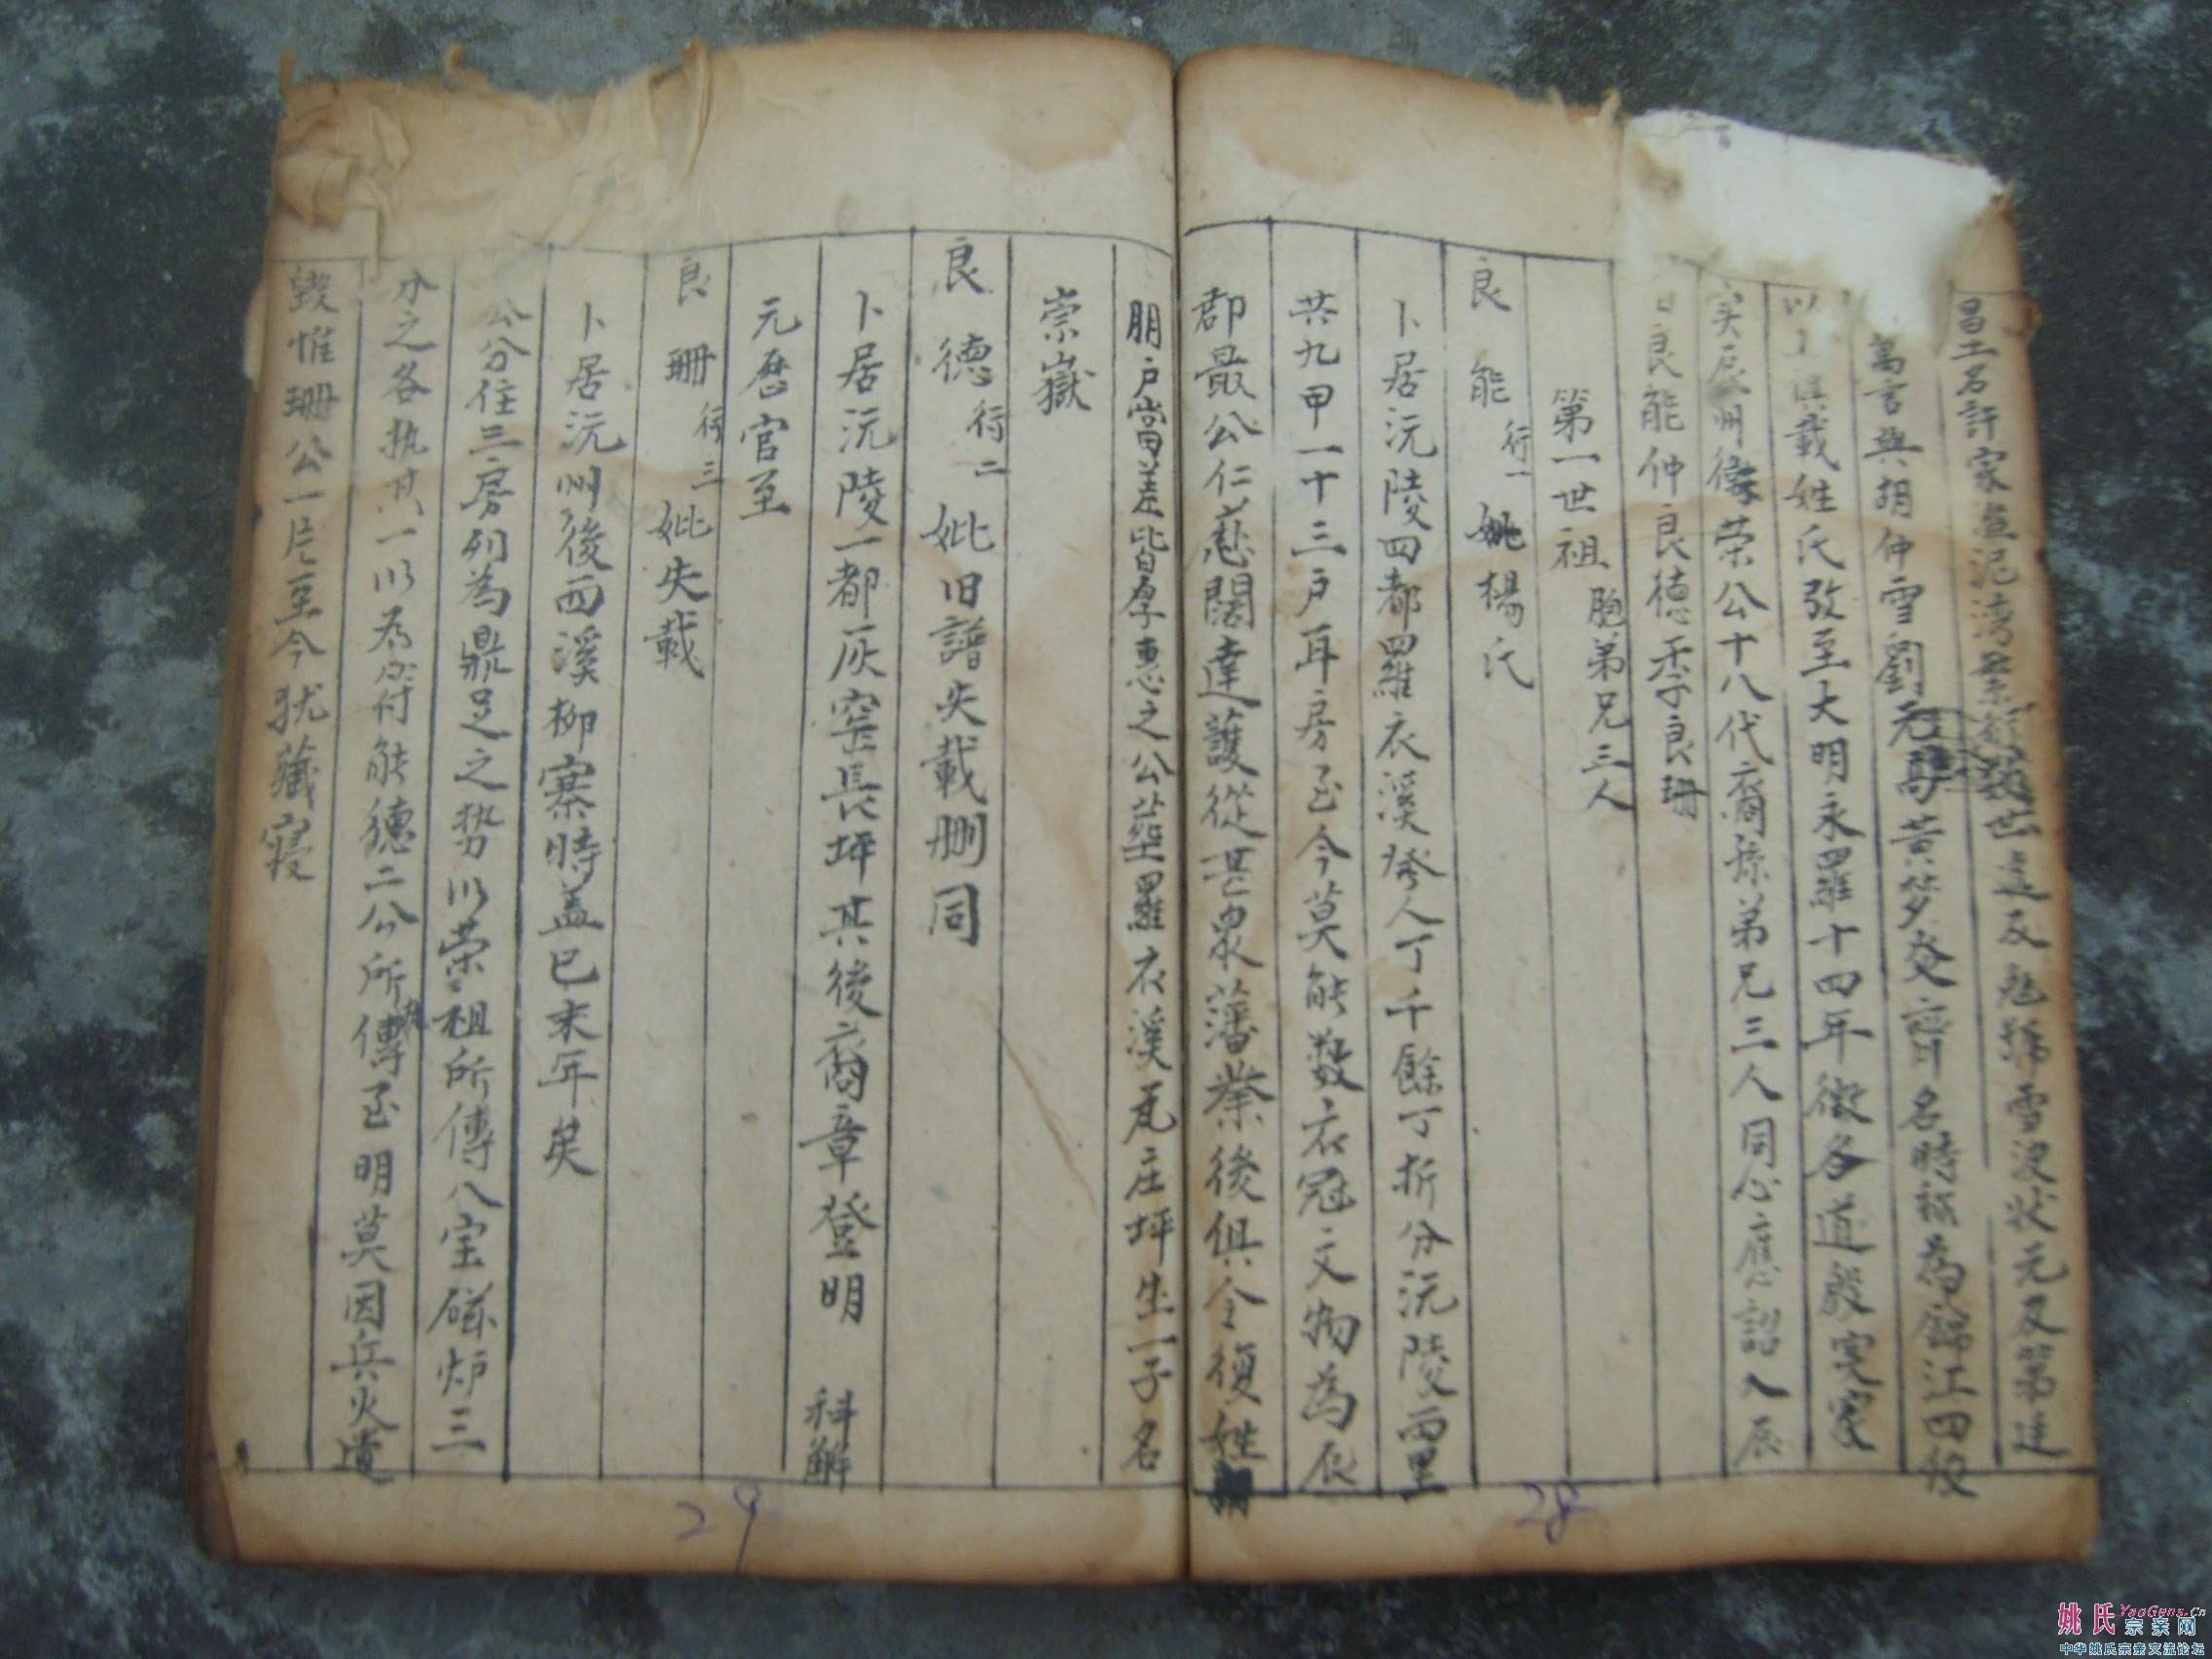 昌土名許家
世遠
號雪波狀元及第廷
萬言與胡仲雪劉元
黃
名時稱為錦江四傑
載姓氏攷至大明永羅十四年徵各道殷实家
实辰州衛荣公十八代裔孫弟兄三人同心應詔入辰
良能仲良德季良珊
第一世祖 胞弟兄三人
良能 行一 姚楊氏
卜居沅陵四都羅衣溪發人丁千餘丁折分沅陵兩里
共九甲一十三戶耳房至今莫能数衣冠文物為辰
郡最公仁慈闊達護從甚衆藩業後俱令復姓
朋户當差皆厚惠之公塟羅衣溪瓦庄坪生一子名
崇嶽
良德 行二 妣旧譜失載刪同
卜居沅陵一都灰窑長坪其後裔章登明 科解
元歷官至
良珊 行三 妣失載
卜居沅州後西溪柳寨時盖己未年矣
公分住三房列為鼎足之势以荣祖所傳八宝磁炉三
分之各执其一以為符能德二公所傳至明莫因兵火遺
毀惟珊公一片至今犹藏寝
28
29
姚氏宗亲网
YaoGens.Cn
中华姚氏宗亲交流论坛